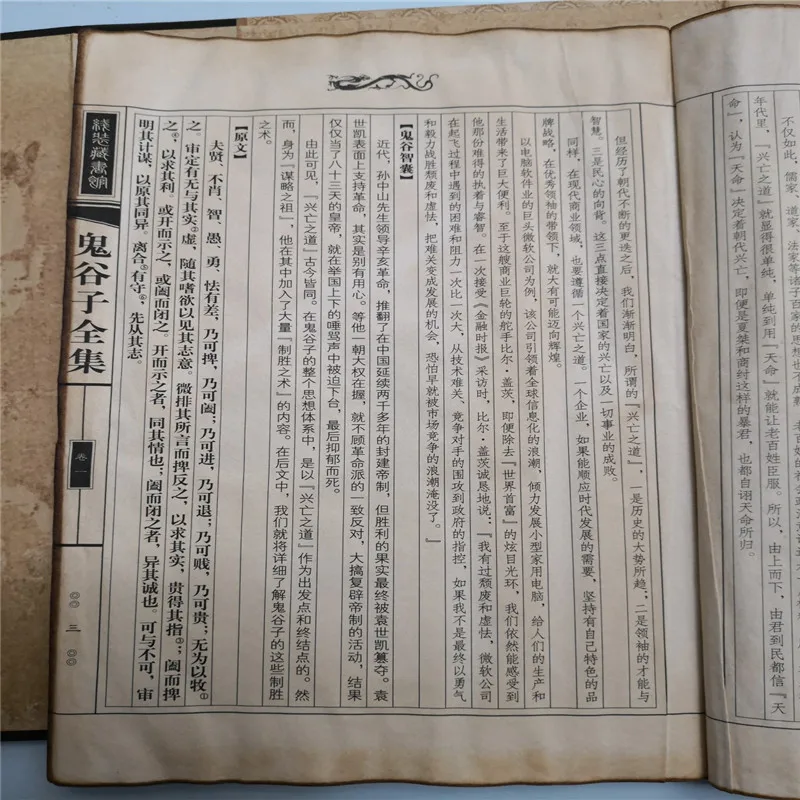 不仅如此，儒家、道家、法家等诸子百家的思想也不
年代里，『兴亡之道』就显得很单纯，单纯到用『天命』就能让老百姓臣服。所以，由上而下、由君到民都信『天
命』，认为『天命』决定着朝代兴亡，即便是夏桀和商纣这样的暴君，也都自诩天命所归。
但经历了朝代不断的更迭之后，我们渐渐明白，所谓的『兴亡之道』，一是历史的大势所趋；二是领袖的才能与
智慧。三是民心的向背。这三点直接决定着国家的兴亡以及一切事业的成败。
同样，在现代商业领域，也要遵循一个兴亡之道。一个企业，如果能顺应时代发展的需要，坚持有自己特色的品
牌战略，在优秀领袖的带领下，就大有可能迈向辉煌。
以电脑软件业的巨头微软公司为例，该公司引领着全球信息化的浪潮，倾力发展小型家用电脑，给人们的生产和
生活带来了巨大便利。至于这艘商业巨轮的舵手比尔·盖茨，即便除去『世界首富』的炫目光环，我们依然能感受到
他那份难得的执着与睿智。在一次接受《金融时报》采访时，比尔·盖茨诚恳地说：『我有过颓废和虚怯，微软公司
在起飞过程中遇到的困难和阻力一次比一次大，从技术难关、竞争对手的围攻到政府的指控，如果我不是最终以勇气
和毅力战胜颓废和虚怯，把难关变成发展的机会，恐怕早就被市场竞争的浪潮淹没了。』
【鬼谷智囊】
近代，孙中山先生领导辛亥革命，推翻了在中国延续两千多年的封建帝制，但胜利的果实最终被袁世凯篡夺。袁
世凯表面上支持革命，其实是别有用心。等他一朝大权在握，就不顾革命派的一致反对，大搞复辟帝制的活动，结果
仅仅当了八十三天的皇帝，就在举国上下的唾骂声中被迫下台，最后抑郁而死。
由此可见，『兴亡之道』古今皆同。在鬼谷子的整个思想体系中，是以『兴亡之道』作为出发点和终结点的。然
而，身为『谋略之祖』，他在其中加入了大量『制胜之术』的内容。在后文中，我们就将详细了解鬼谷子的这些制胜
之术。
【原文】
夫贤、不肖、智、愚、勇、怯有差，乃可捭，乃可阖；乃可进，乃可退；乃可贱，乃可贵；无为以牧①
之。审定有无与其实②虚，随其嗜欲以见其志意。微排其所言而捭反之，以求其实，贵得其指③；阖而捭
之④，以求其利。或开而示之，或阖而闭之。开而示之者，同其情也；阖而闭之者，异其诚也。可与不可，审
明其计谋，以原其同异。离合⑤有守⑥，先从其志
线装藏书馆
鬼谷子全集
卷一
〇〇三〇〇